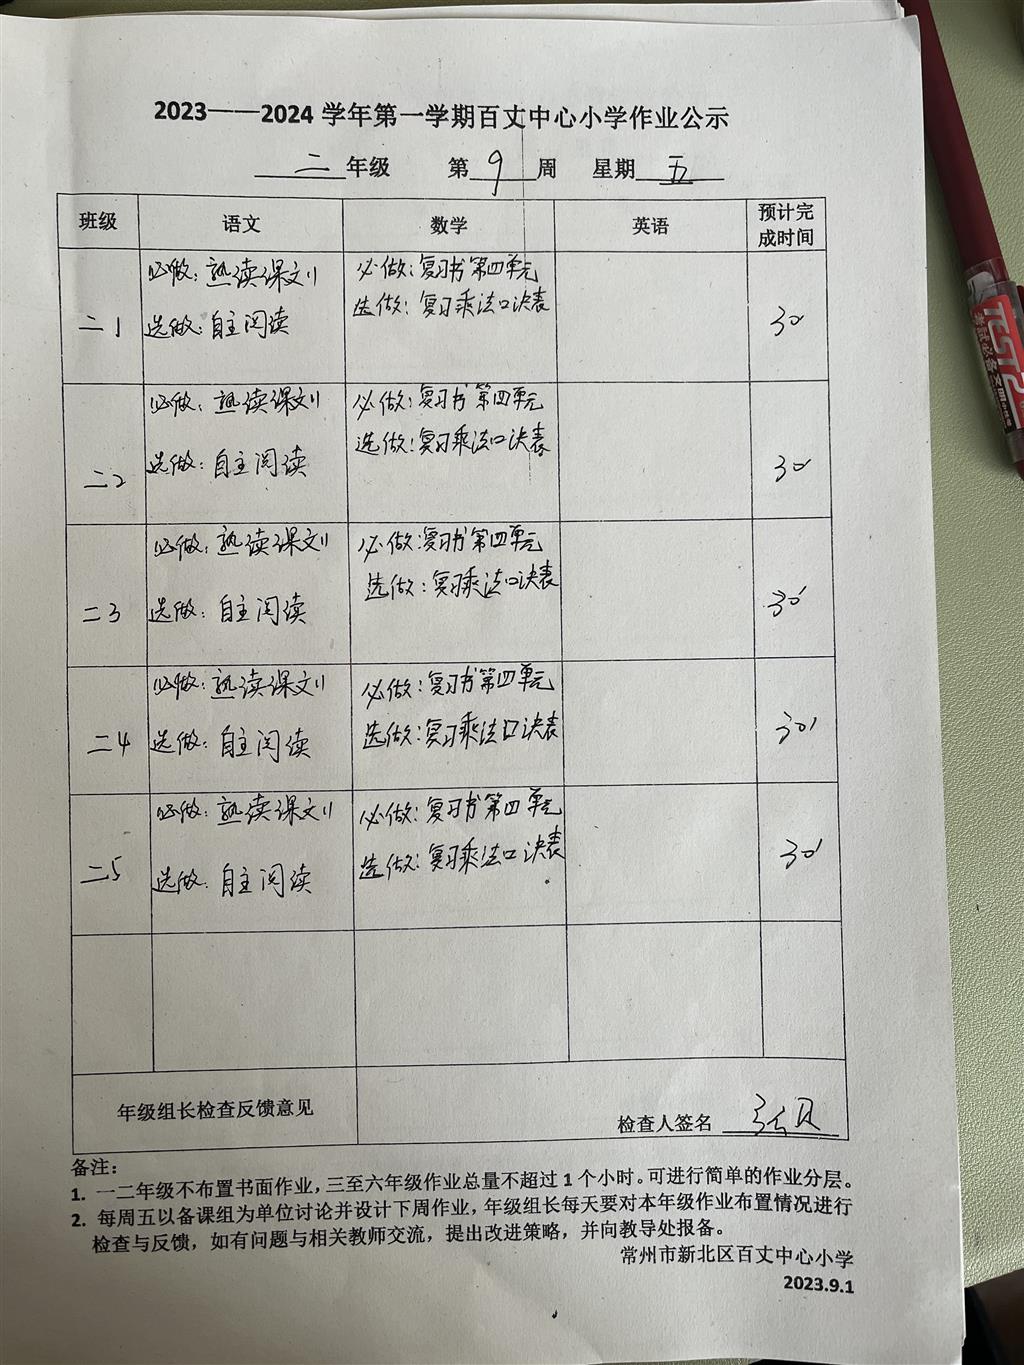 2023——2024 学年第一学期百丈中心小学作业公示
二 年级 第 9 周 星期 五
班级 语文 数学 英语 预计完成时间
二1
必做：熟读课文11
选做：自主阅读
必做：复习书第四单元
选做：复习乘法口诀表
30'
二2
必做：熟读课文11
选做：自主阅读
必做：复习书第四单元
选做：复习乘法口诀表
30'
二3
必做：熟读课文11
选做：自主阅读
必做：复习书第四单元
选做：复习乘法口诀表
30'
二4
必做：熟读课文11
选做：自主阅读
必做：复习书第四单元
选做：复习乘法口诀表
30'
二5
必做：熟读课文11
选做：自主阅读
必做：复习书第四单元
选做：复习乘法口诀表
30'
年级组长检查反馈意见
检查人签名
备注：
1. 一二年级不布置书面作业，三至六年级作业总量不超过 1 个小时。可进行简单的作业分层。
2. 每周五以备课组为单位讨论并设计下周作业，年级组长每天要对本年级作业布置情况进行
检查与反馈，如有问题与相关教师交流，提出改进策略，并向教导处报备。
常州市新北区百丈中心小学
2023.9.1
TEST